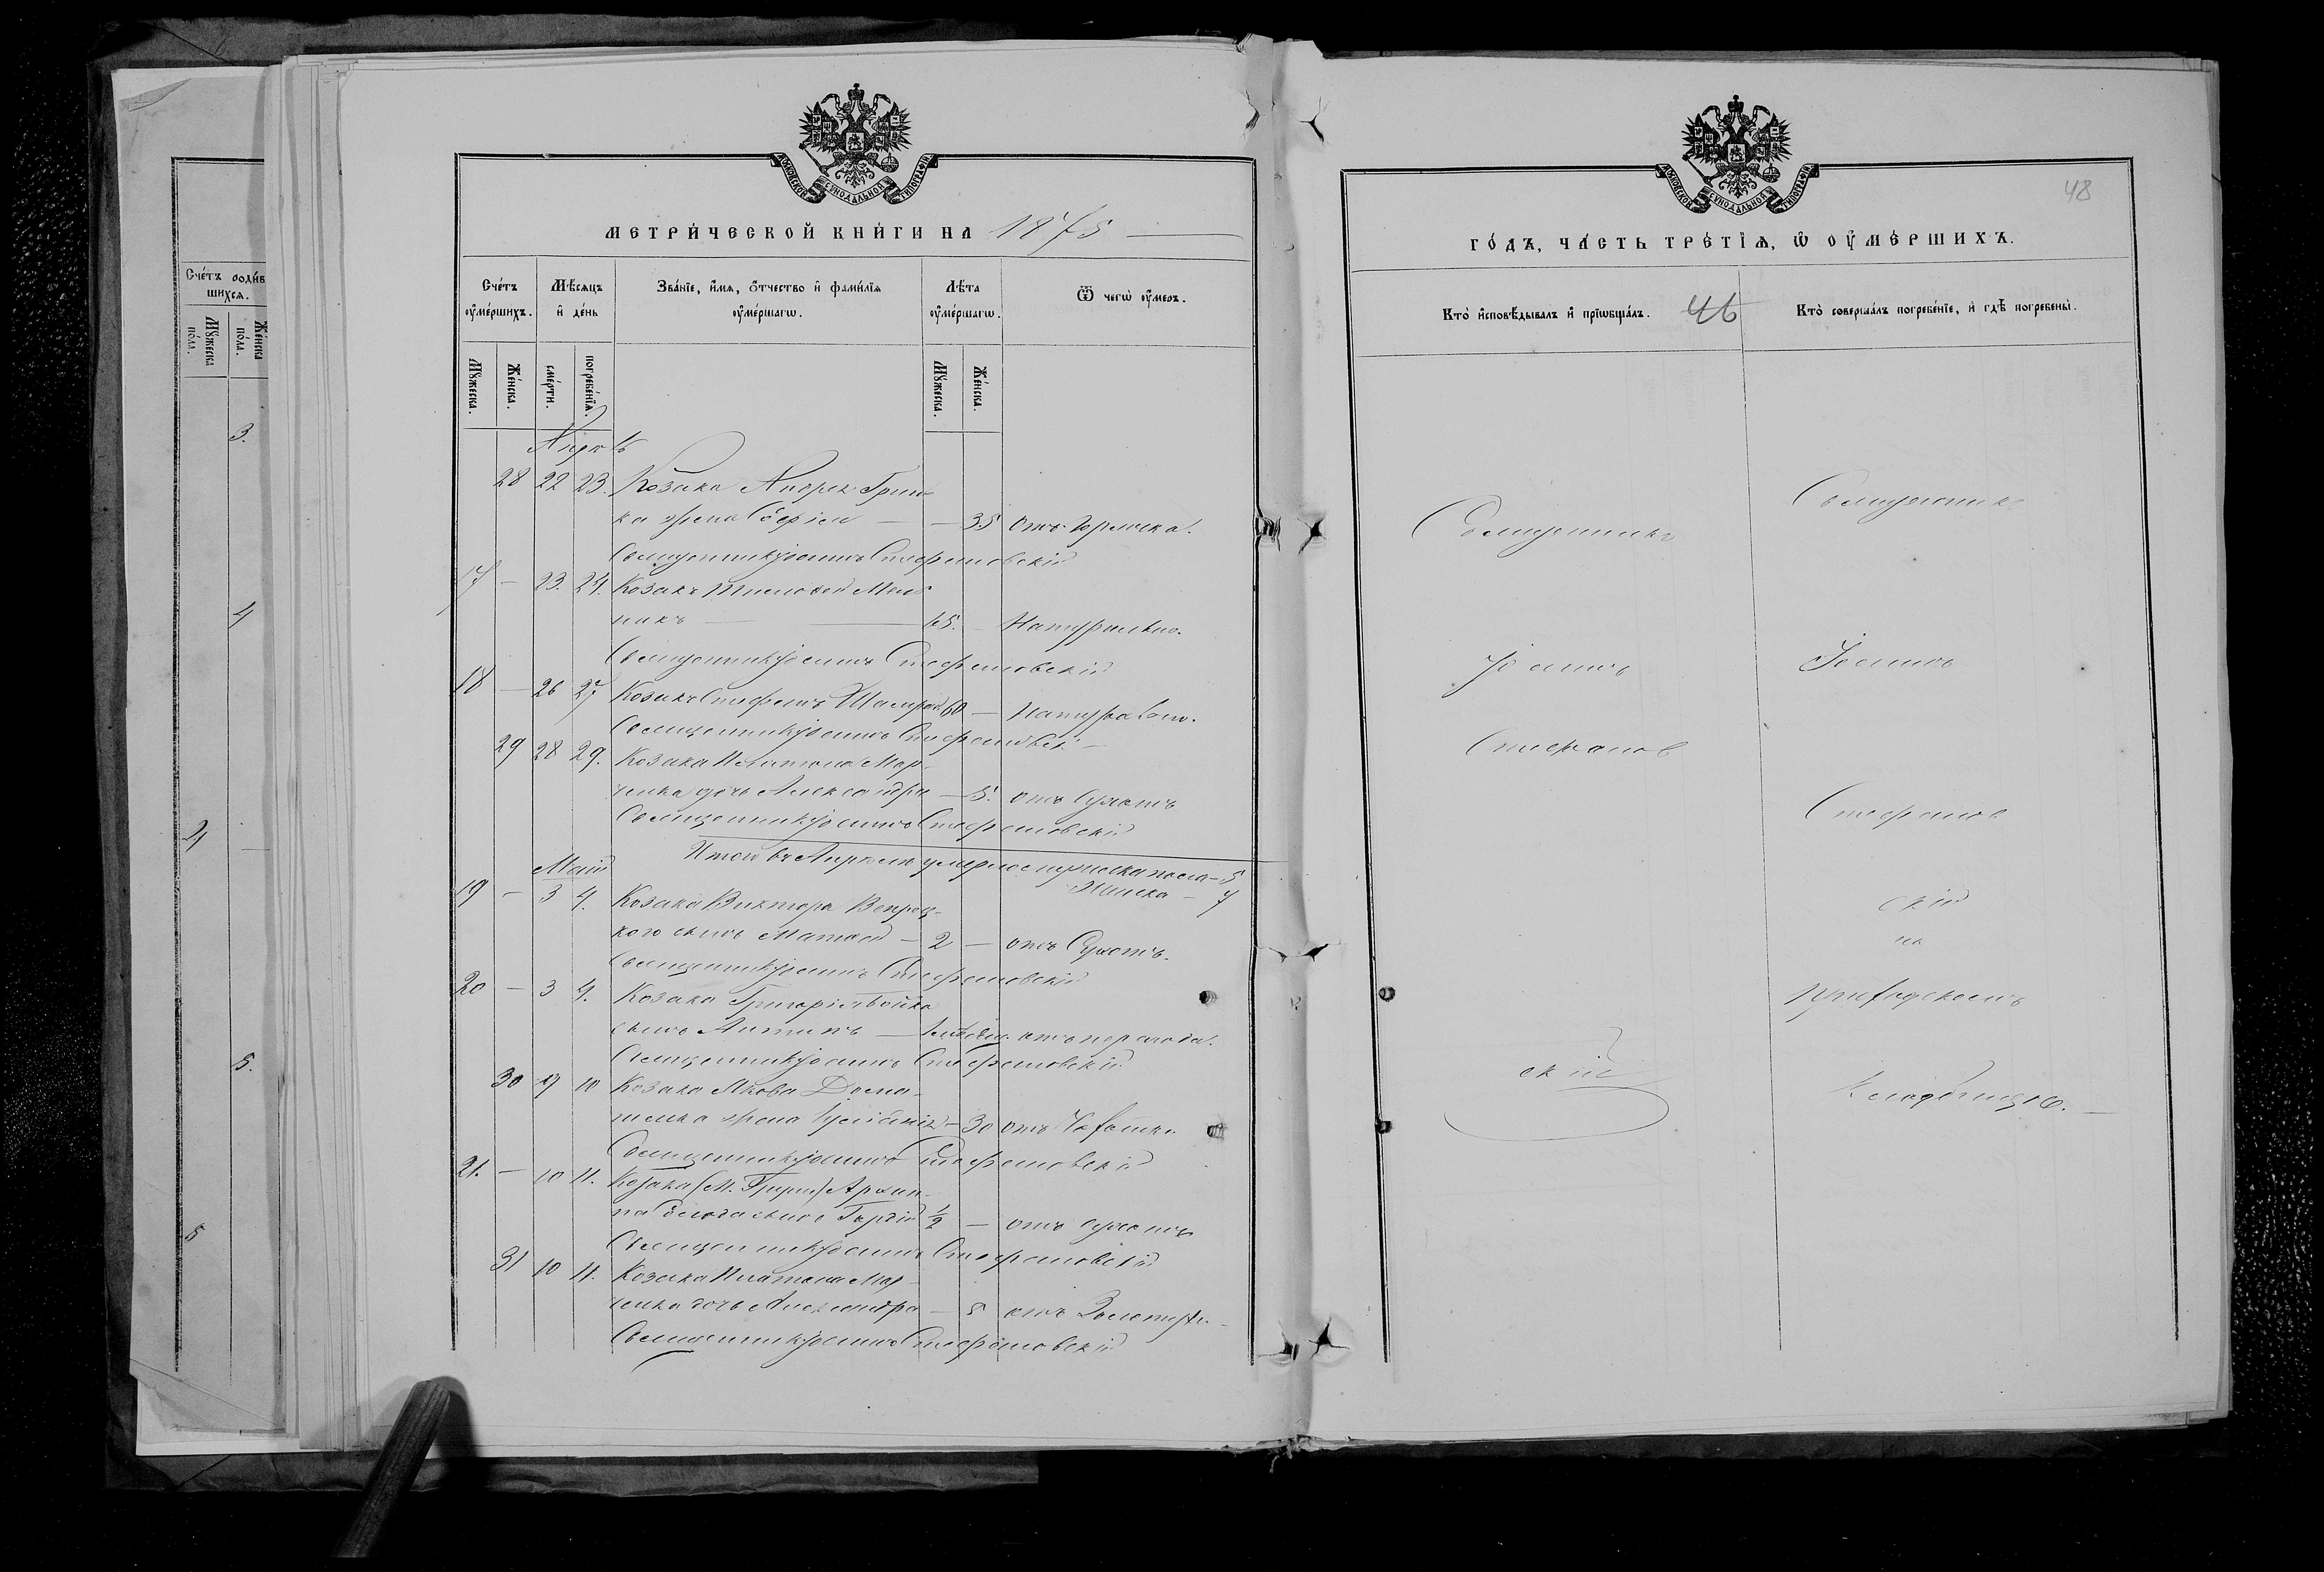 Счетъ родив
шихся.
Мужеска
пола.
Женска
пола.
3.
4
2
5.
5
МОСКОВСКОЙ СѴНОДАЛЬНОЙ ТИПОГРАФІИ
МЕТРИЧЕСКОЙ КНИГИ НА 1875
Счетъ
оумершихъ.
Мѣсяцъ
и день
Званіе, имя, отчество и фамилія
оумершагѡ.
Лѣта
оумершагѡ.
Ѿ чегѡ оумеръ.
Мужеска.
Женска.
смерти.
погребенія.
Мужеска.
Женска.
Апрѣль
28 22 23. Козака Андрея Грин
ка жена Софія — — 35 отъ горячка.
Священникъ Іоаннъ Стефановскій
17 — 23. 24. Козакъ Тимофей Мель
никъ — 65. — Натурально.
Священникъ Іоаннъ Стефановскій
18 — 26 27 Козакъ Стефанъ 60 — Натурально.
Священникъ Іоаннъ Стефановскі
29 28 29. Козака Платона Мар-
ченка дочь Александра — 5. отъ сухотъ
Священникъ Іоаннъ Стефановскій
Итого въ Апрѣлѣ умерло мужеска пола — 5
Женска — 7
Май
19 — 3 4. Козака Виктора Вепрец-
кого сынъ Матвей — 2 — отъ сухотъ.
Священникъ Іоаннъ Стефановскій
20 — 3 4. Козака Григорія Бойка
сынъ Антипъ —
Священникъ Іоаннъ Стефановскій
30 9 10 Козака Якова Дома-
жена Іуліанія — 30 отъ
Священникъ Іоаннъ Стефановскій
21. — 10 11. Козака Архип-
па сынъ Гордій 1/2 — отъ сухотъ
Священникъ Іоаннъ Стефановскій
31 10 11. Козака Платона Мар-
ченка дочь Александра — 5 отъ Золотухи
Священникъ Іоаннъ Стефановскій
МОСКОВСКОЙ СѴНОДАЛЬНОЙ ТИПОГРАФІИ
48
ГОДЪ, ЧАСТЬ ТРЕТІЯ, Ѡ ОУМЕРШИХЪ.
Кто исповѣдывалъ и пріѡбщалъ. 46
Кто совершалъ погребеніе, и гдѣ погребены.
Священникъ
Іоаннъ
Стефанов
скій
Священникъ
Іоаннъ
Стефанов
скій
на
приходскомъ
кладбищѣ.